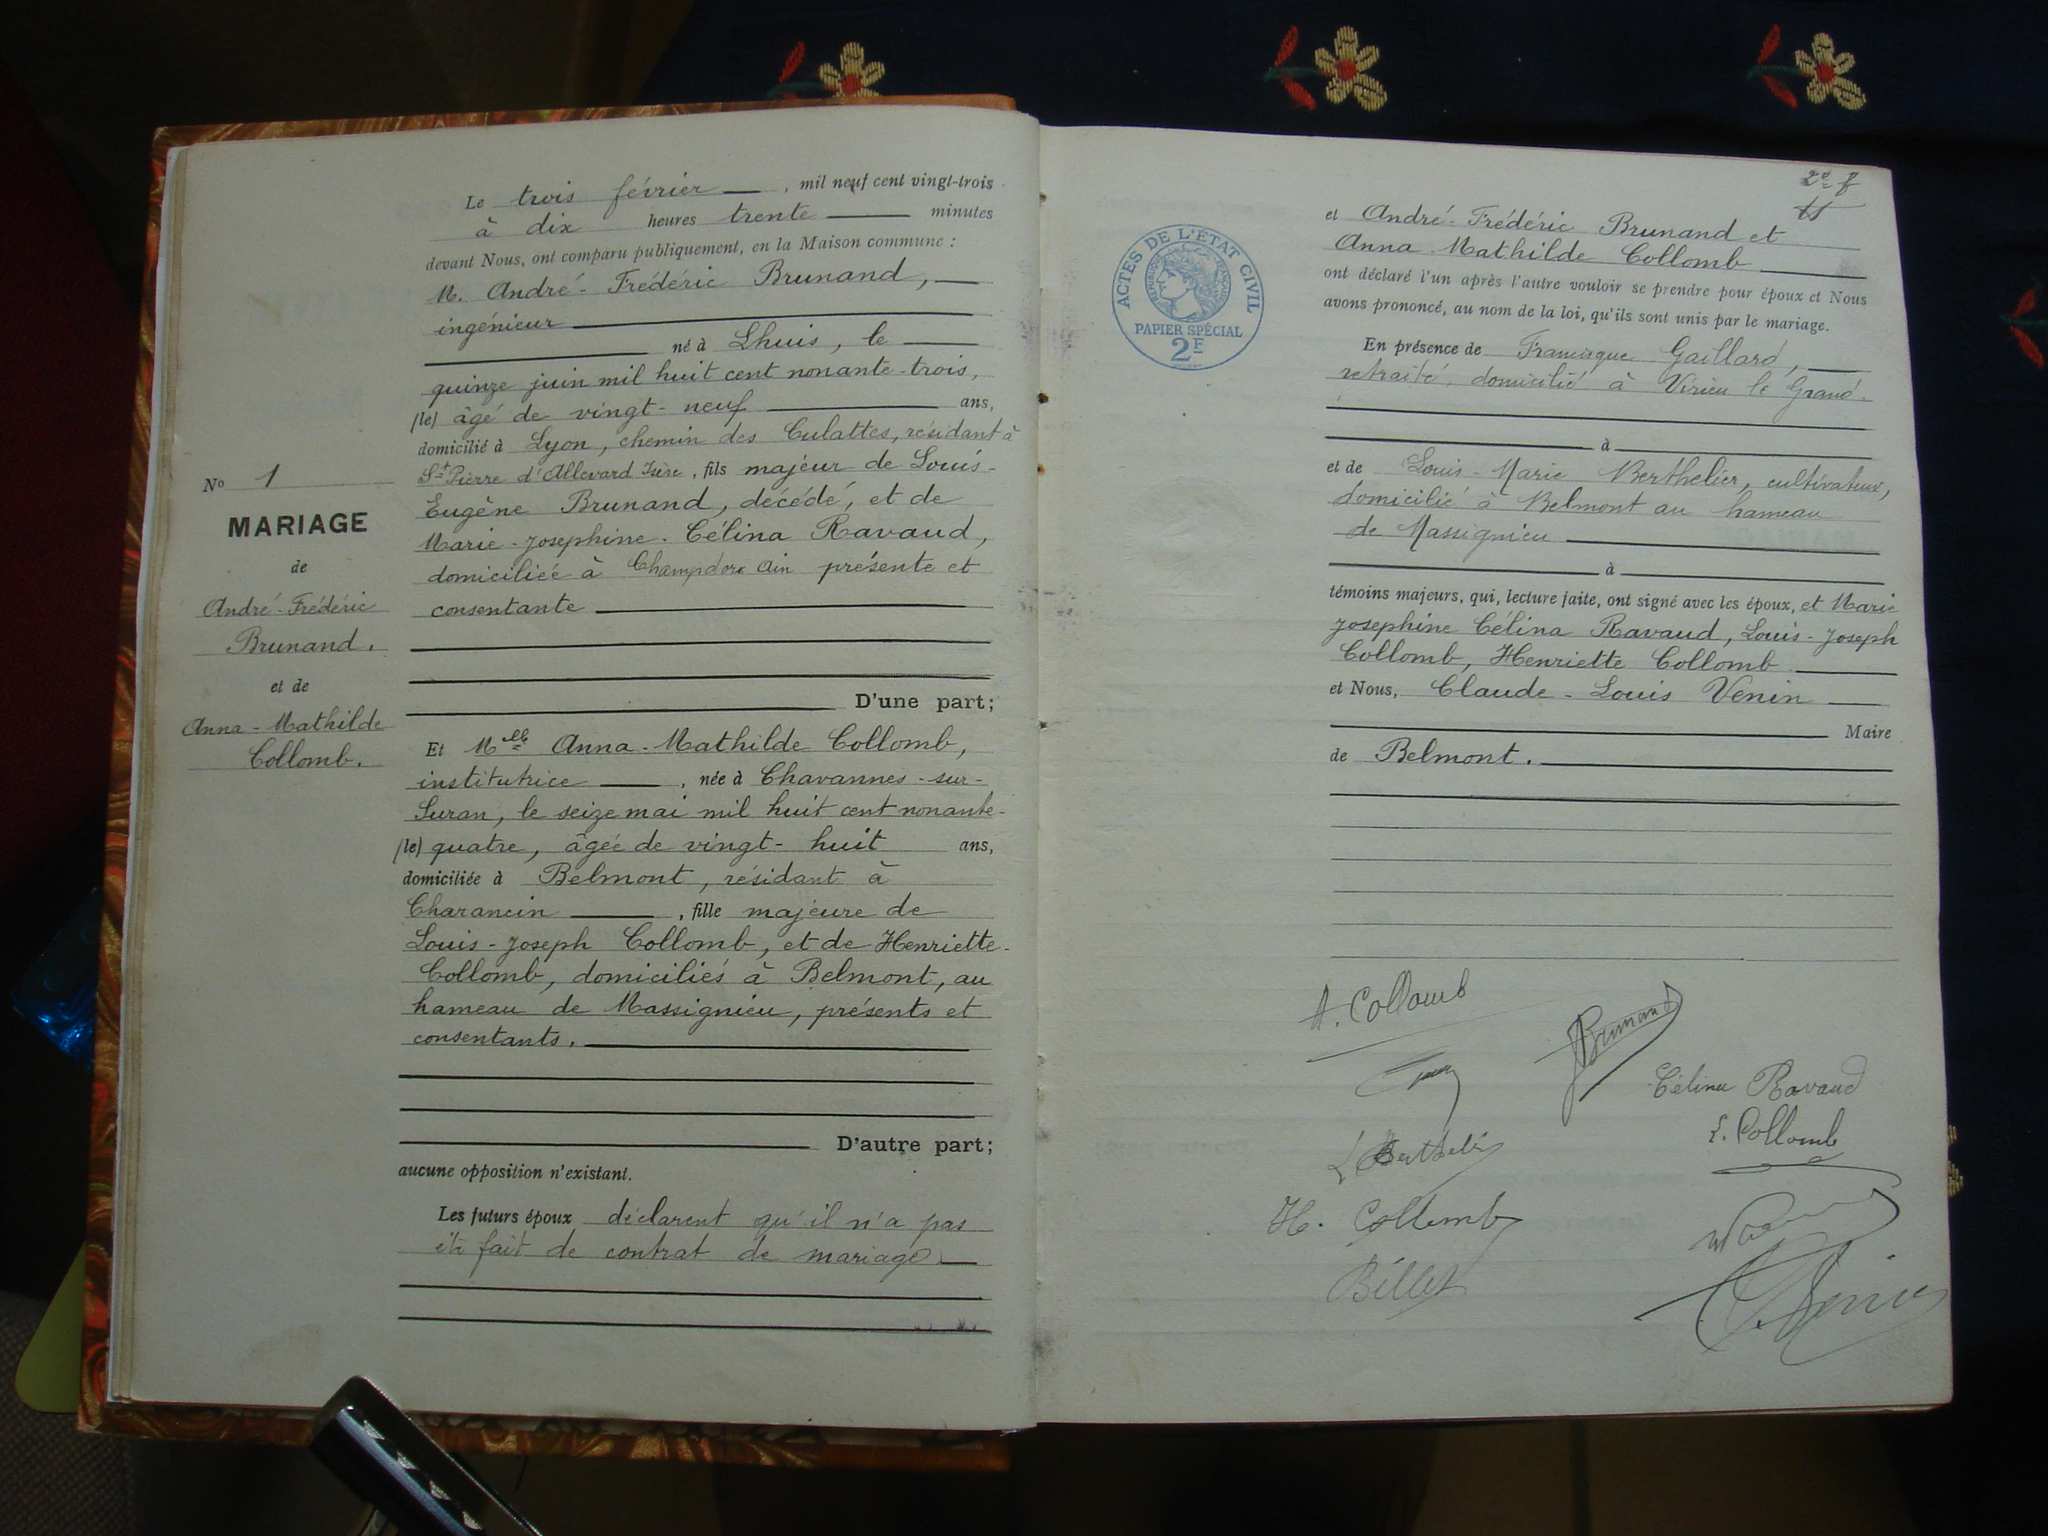 Le trois février, mil neuf cent vingt-trois
à dix heures trente minutes
devant Nous, ont comparu publiquement, en la Maison commune :
M. André-Frédéric Brunand,
ingénieur
né à Lhuis, le
quinze juin mil huit cent nonante-trois,
(le) âgé de vingt-neuf ans,
domicilié à Lyon, chemin des Culattes, résidant à
St Pierre d'Allevard Isère, fils majeur de Louis-
Eugène Brunand, décédé, et de
Marie-Josephine-Célina Ravaud,
domiciliée à Champdor Ain présente et
consentante
D'une part;
No 1
MARIAGE
de
André-Frédéric
Brunand.
et de
Anna-Mathilde
Collomb.
Et Mlle Anna-Mathilde Collomb,
institutrice, née à Chavannes-sur-
Suran, le seize mai mil huit cent nonante-
(le) quatre, âgée de vingt-huit ans,
domiciliée à Belmont, résidant à
Charancin, fille majeure de
Louis-Joseph Collomb, et de Henriette-
Collomb, domiciliés à Belmont, au
hameau de Massignieu, présents et
consentants.
D'autre part;
aucune opposition n'existant.
Les futurs époux déclarent qu'il n'a pas
été fait de contrat de mariage.
ACTES DE L'ÉTAT CIVIL
RÉPUBLIQUE FRANÇAISE
PAPIER SPÉCIAL
2F
2e f
et André-Frédéric Brunand et
Anna Mathilde Collomb
ont déclaré l'un après l'autre vouloir se prendre pour époux et Nous
avons prononcé, au nom de la loi, qu'ils sont unis par le mariage.
En présence de Francisque Gaillard,
retraité, domicilié à Virieu le Grand.
à
et de Louis-Marie Berthelier, cultivateur,
domicilié à Belmont au hameau
de Massignieu
à
témoins majeurs, qui, lecture faite, ont signé avec les époux, et Marie
Josephine Célina Ravaud, Louis-Joseph
Collomb, Henriette Collomb
et Nous, Claude-Louis Venin
Maire
de Belmont.
A. Collomb
Brunand
Célina Ravaud
L. Berthelier
L. Collomb
H. Collomb
Billet
C. Venin